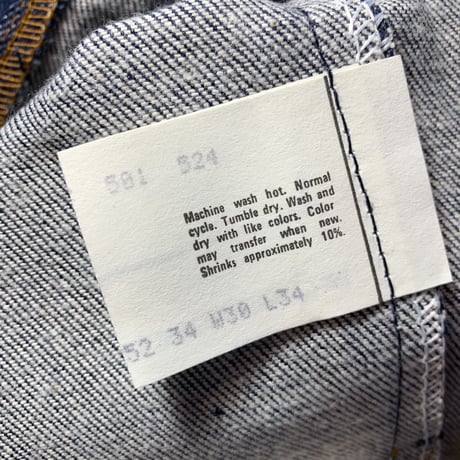 501 524
Machine wash hot. Normal
cycle. Tumble dry. Wash and
dry with like colors. Color
may transfer when new.
Shrinks approximately 10%.
52 34 W30 L34